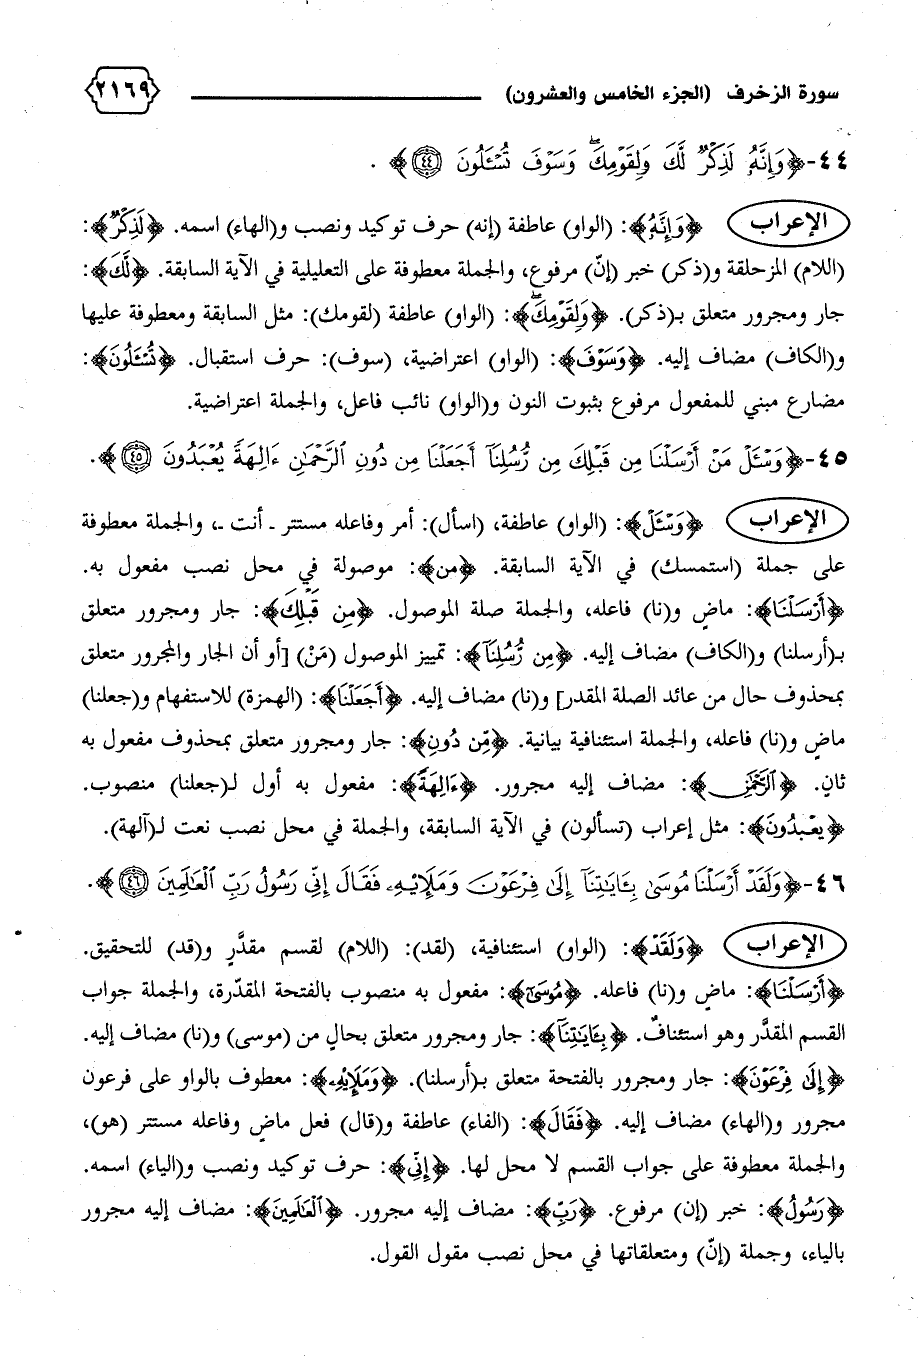 سورة الزخرف (الجزء الخامس والعشرون) ٢١٦٩
٤٤-﴿وَإِنَّهُۥ لَذِكْرٌ لَّكَ وَلِقَوْمِكَۖ وَسَوْفَ تُسْـَٔلُونَ ٤٤﴾ .
الإعراب ﴿وَإِنَّهُۥ﴾: (الواو) عاطفة (إنه) حرف توكيد ونصب و(الهاء) اسمه. ﴿لَذِكْرٌ﴾:
(اللام) المزحلقة و(ذكر) خبر (إنّ) مرفوع، والجملة معطوفة على التعليلية في الآية السابقة. ﴿لَّكَ﴾:
جار ومجرور متعلق بـ(ذكر). ﴿وَلِقَوْمِكَۖ﴾: (الواو) عاطفة (لقومك): مثل السابقة ومعطوفة عليها
و(الكاف) مضاف إليه. ﴿وَسَوْفَ﴾: (الواو) اعتراضية، (سوف): حرف استقبال. ﴿تُسْـَٔلُونَ﴾:
مضارع مبني للمفعول مرفوع بثبوت النون و(الواو) نائب فاعل، والجملة اعتراضية.
٤٥-﴿وَسْـَٔلْ مَنْ أَرْسَلْنَا مِن قَبْلِكَ مِن رُّسُلِنَآ أَجَعَلْنَا مِن دُونِ ٱلرَّحْمَٰنِ ءَالِهَةً يُعْبَدُونَ ٤٥﴾.
الإعراب ﴿وَسْـَٔلْ﴾: (الواو) عاطفة، (اسأل): أمر وفاعله مستتر ـ أنت ـ، والجملة معطوفة
على جملة (استمسك) في الآية السابقة. ﴿من﴾: موصولة في محل نصب مفعول به.
﴿أَرْسَلْنَا﴾: ماضٍ و(نا) فاعله، والجملة صلة الموصول. ﴿مِن قَبْلِكَ﴾: جار ومجرور متعلق
بـ(أرسلنا) و(الكاف) مضاف إليه. ﴿مِن رُّسُلِنَآ﴾: تمييز الموصول (مَنْ) [أو أن الجار والمجرور متعلق
بمحذوف حال من عائد الصلة المقدر] و(نا) مضاف إليه. ﴿أَجَعَلْنَا﴾: (الهمزة) للاستفهام و(جعلنا)
ماضٍ و(نا) فاعله، والجملة استئنافية بيانية. ﴿مِّن دُونِ﴾: جار ومجرور متعلق بمحذوف مفعول به
ثانٍ. ﴿ٱلرَّحْمَٰنِ﴾: مضاف إليه مجرور. ﴿ءَالِهَةً﴾: مفعول به أول لـ(جعلنا) منصوب.
﴿يعْبَدُونَ﴾: مثل إعراب (تسألون) في الآية السابقة، والجملة في محل نصب نعت لـ(آلهة).
٤٦-﴿وَلَقَدْ أَرْسَلْنَا مُوسَىٰ بِـَٔايَٰتِنَآ إِلَىٰ فِرْعَوْنَ وَمَلَإِيْهِۦ فَقَالَ إِنِّى رَسُولُ رَبِّ ٱلْعَٰلَمِينَ ٤٦﴾.
الإعراب ﴿وَلَقَدْ﴾: (الواو) استئنافية، (لقد): (اللام) لقسم مقدَّرٍ و(قد) للتحقيق.
﴿أَرْسَلْنَا﴾: ماضٍ و(نا) فاعله. ﴿مُوسَىٰ﴾: مفعول به منصوب بالفتحة المقدّرة، والجملة جواب
القسم المقدَّر وهو استئنافٌ. ﴿بِـَٔايَٰتِنَآ﴾: جار ومجرور متعلق بحالٍ من (موسى) و(نا) مضاف إليه.
﴿إِلَىٰ فِرْعَوْنَ﴾: جار ومجرور بالفتحة متعلق بـ(أرسلنا). ﴿وَمَلَإِيْهِۦ﴾: معطوف بالواو على فرعون
مجرور و(الهاء) مضاف إليه. ﴿فَقَالَ﴾: (الفاء) عاطفة و(قال) فعل ماضٍ وفاعله مستتر (هو)،
والجملة معطوفة على جواب القسم لا محل لها. ﴿إِنِّى﴾: حرف توكيد ونصب و(الياء) اسمه.
﴿رَسُولُ﴾: خبر (إن) مرفوع. ﴿رَبِّ﴾: مضاف إليه مجرور. ﴿ٱلْعَٰلَمِينَ﴾: مضاف إليه مجرور
بالياء، وجملة (إنّ) ومتعلقاتها في محل نصب مقول القول.